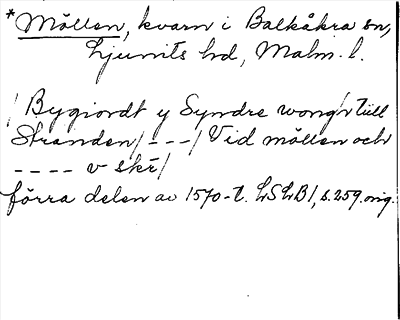 * Möllen, kvarn i Balkåkra sn,
Ljunits hd, Malm. l.
/ Bygiordt y Syndre wongn till
Stranden / - - - / Vid möllen och
- - - - v skr /
förra delen av 1570-t. LSLB 1, s. 259. orig.